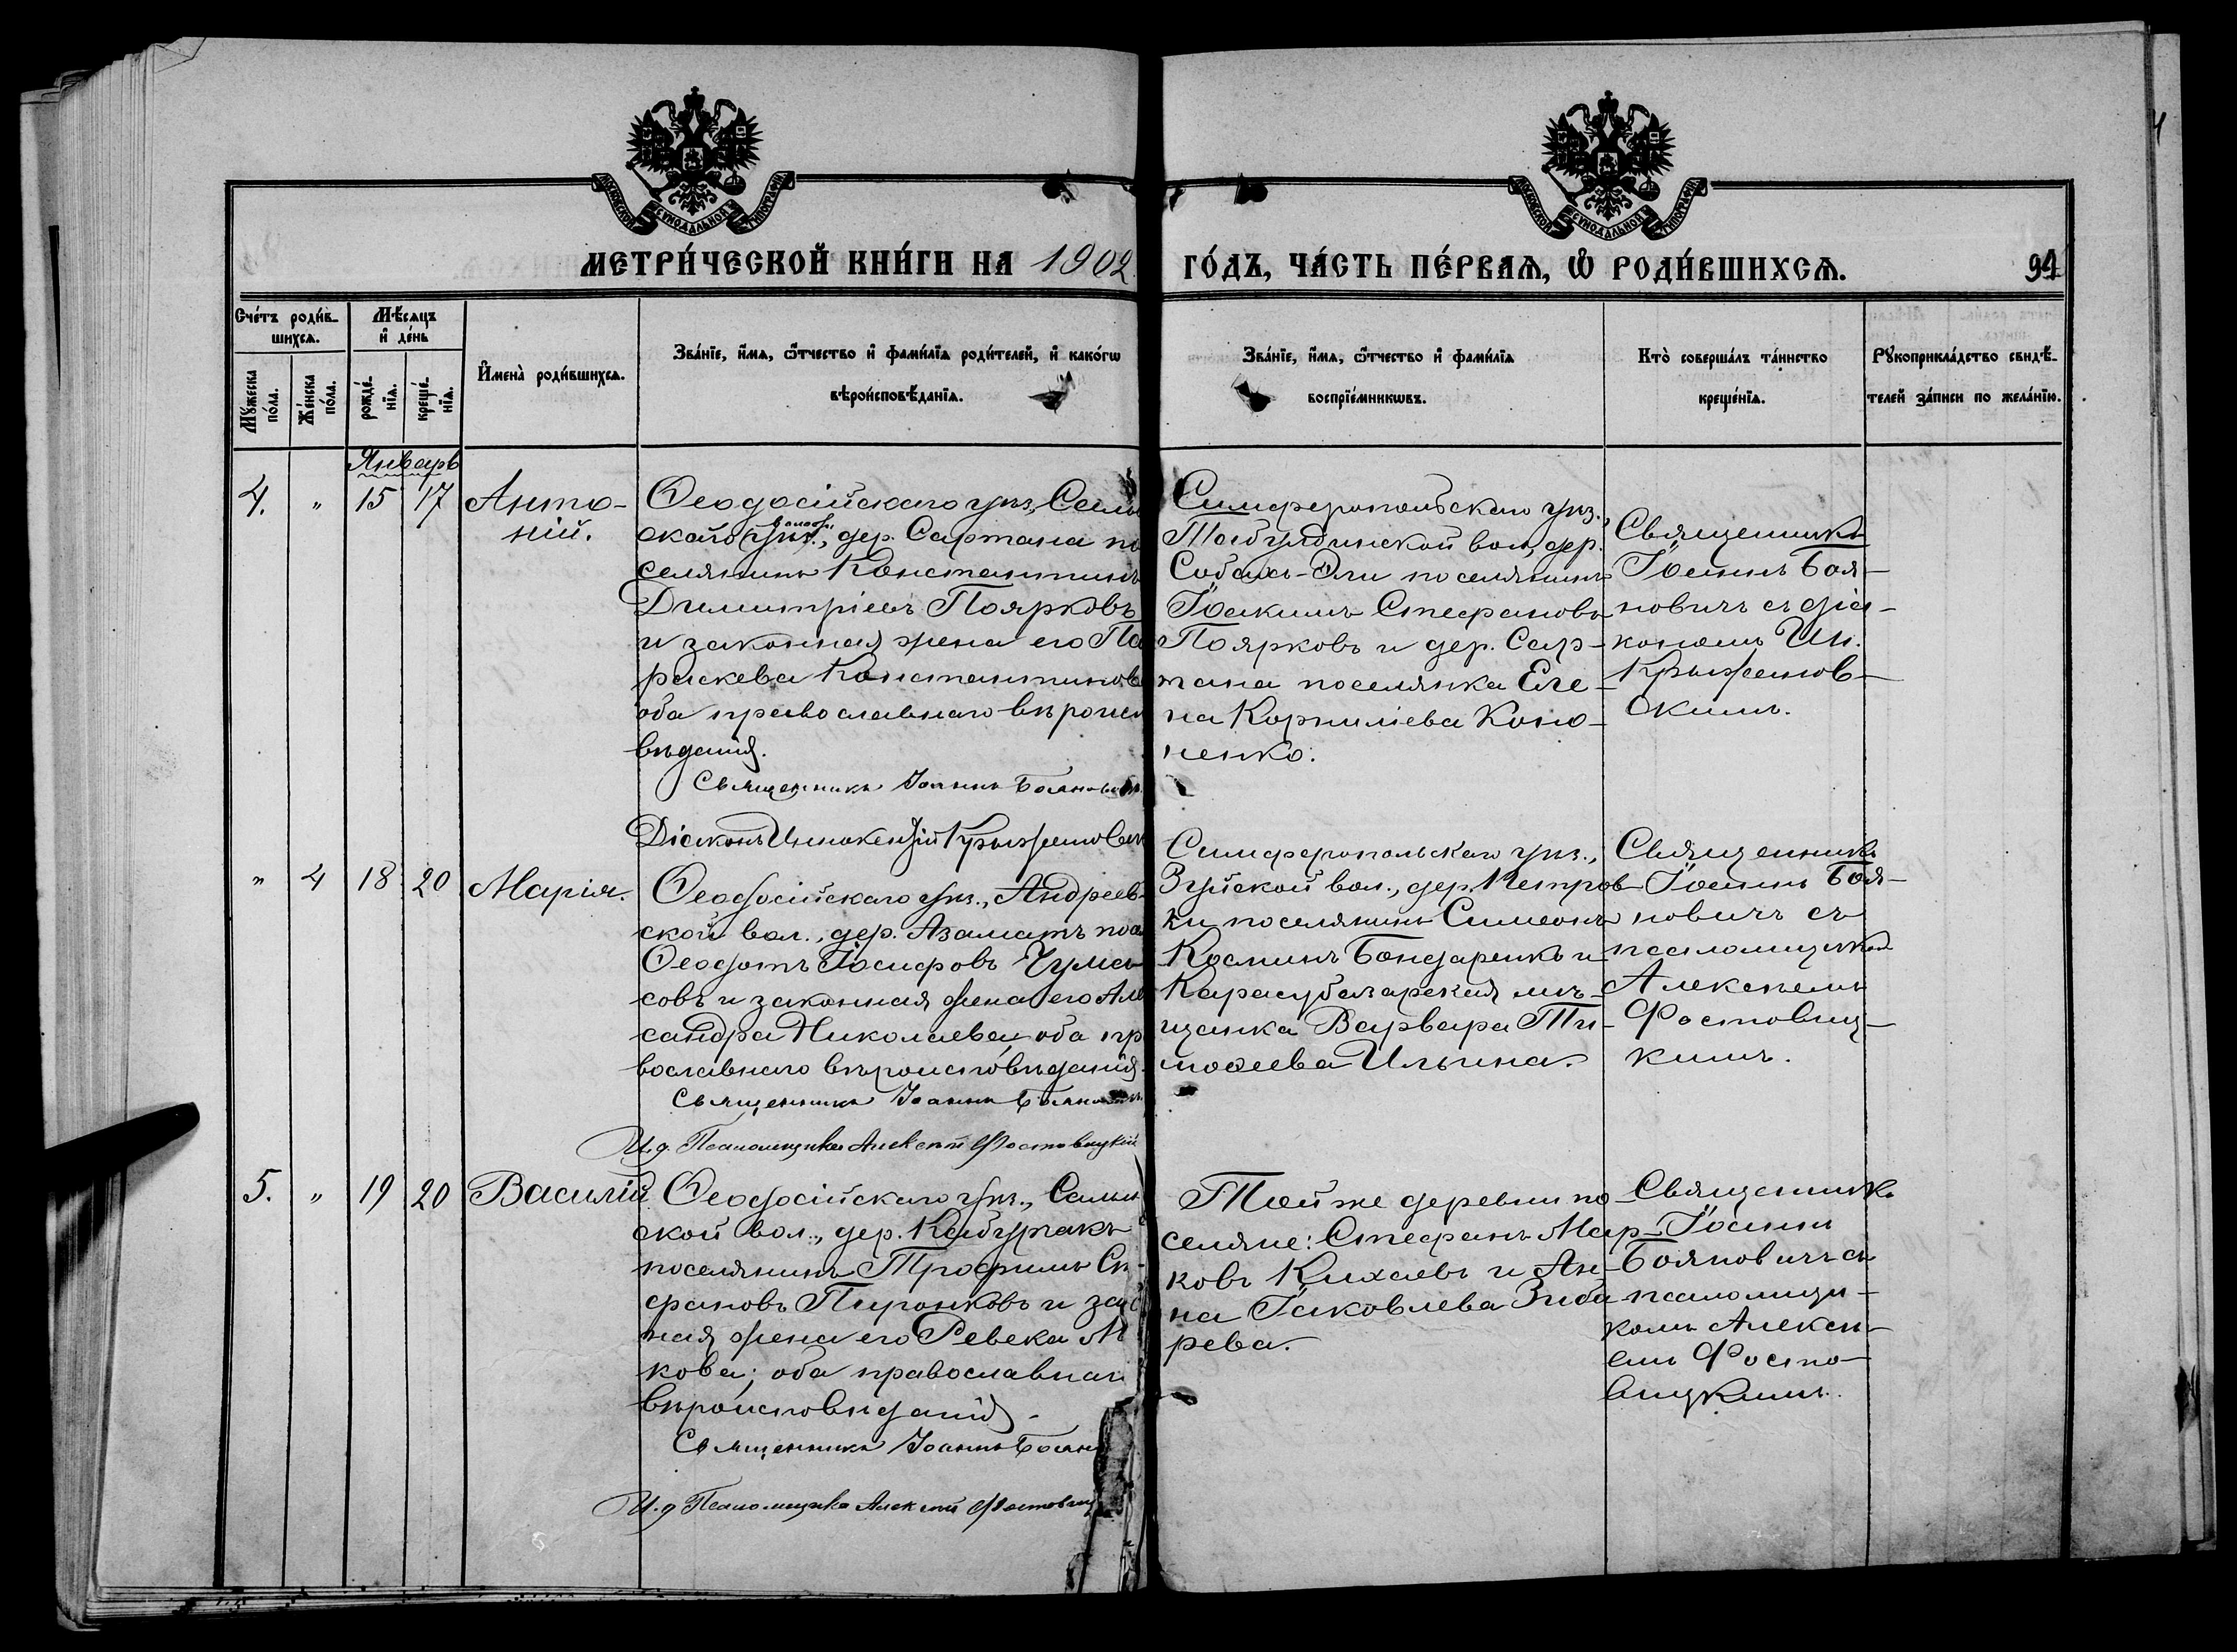 МОСКОВСКОЙ СѴНОДАЛЬНОЙ ТИПОГРАФІИ
МОСКОВСКОЙ СѴНОДАЛЬНОЙ ТИПОГРАФІИ
МЕТРИ́ЧЕСКОЙ КНИ́ГИ НА 1902 ГО́ДЪ, ЧА́СТЬ ПЕ́РВАѦ, Ѽ РОДИ́ВШИХСѦ.
94
Сче́тъ роди́в-
шихсѧ.
Мѣ́сѧцъ
и҆ де́нь
Мꙋ́жеска
по́ла.
Же́нска
по́ла.
рожде́-
нїѧ.
креще́-
нїѧ.
И҆мена̀ роди́вшихсѧ.
Зва́нїе, и҆́мѧ, ѻ҆́тчество и҆ фами́лїѧ роди́телей, и҆ како́гѡ
вѣроисповѣ́данїѧ.
Зва́нїе, и҆́мѧ, ѻ҆́тчество и҆ фами́лїѧ
воспрїе́мникѡвъ.
Кто̀ соверша́лъ та́инство
креще́нїѧ.
Рꙋкоприкла́дство свидѣ́-
телей за́писи по жела́нїю.
Январь
4.
"
15
17
Анто-
ній.
Ѳеодосійскаго уѣз.,
скаго волос., дер. Сартана по
селянинъ Константинъ
Димитріевъ Поярковъ
и законная жена его Па
раскева Константинов
оба православнаго вѣроис
вѣданія.
Священникъ Іоаннъ Боянович
Діаконъ Иннокентій Крыжановск
Симферопольскаго уѣз.,
Табулдинской вол., дер.
Собакъ-Эли поселянинъ
Іоакимъ Стефановъ
Поярковъ и дер. Сар-
тана поселянка Еле-
на Корниліева Коно-
ненко.
Священникъ
Іоаннъ Боя-
новичъ съ діа-
кономъ Ин.
Крыжанов-
скимъ.
"
4
18
20
Марія.
Ѳеодосійскаго уѣз., Андреев-
ской вол., дер. Азаматъ пос
Ѳеодотъ Іосифовъ
совъ и законная жена его Але
сандра Николаева, оба пр
вославнаго вѣроисповѣданія.
Священникъ Іоаннъ Боянович
И.д. Псаломщика Алексѣй Фостовицкій
Симферопольскаго уѣз.,
Зуйской вол., дер. Петров-
ки поселянинъ Симеонъ
Космин Бондаренко и
Карасубазарская мѣ-
щанка Варвара Ти-
моѳеева Ильина.
Священникъ
Іоаннъ Боя-
новичъ съ
псаломщиком
Алексѣемъ
Фостовиц-
кимъ.
5.
"
19
20
Василій
Ѳеодосійскаго уѣз., Салын
ской вол., дер. Кабурчакъ
поселянинъ Трофимъ Сте
фановъ Пиронковъ и зак
ная жена его Ревека М
кова; оба православнаг
вѣроисповѣданія.
Священникъ Іоаннъ Бояно
И.д. Псаломщика Алексѣй Фостовиц
Той же деревни по-
селяне: Стефанъ Мар-
ковъ Кихаевъ и Ан-
на Іаковлева Зиба
рева.
Священникъ
Іоаннъ
Бояновичъ съ
псаломщи-
комъ Алексѣ-
емъ Фосто-
вицкимъ.